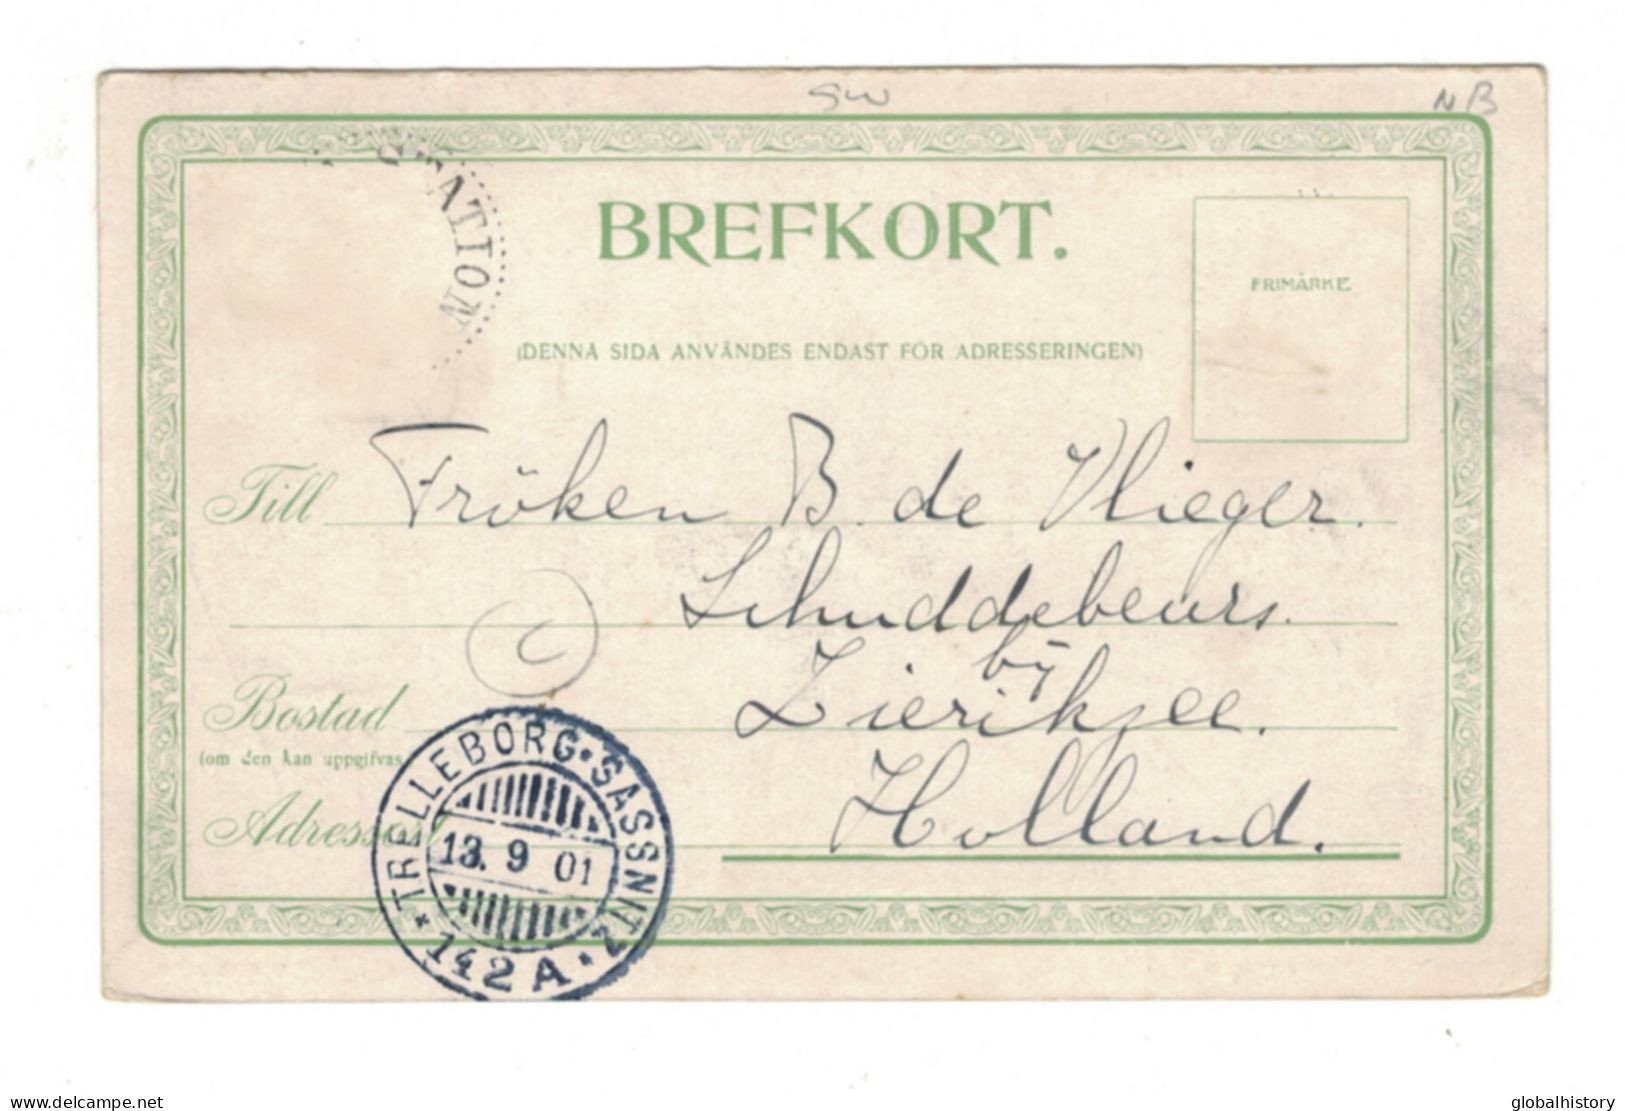 SW
NB
STATION
BREFKORT.
FRIMÄRKE
(DENNA SIDA ANVÄNDES ENDAST FÖR ADRESSERINGEN)
Till Fröken B. de Vlieger.
Schuddebeurs.
by
Bostad Zierikzee.
(om den kan uppgifvas
Holland.
Adressort
C
TRELLEBORG·SASSNITZ
13. 9 01
* 142A *
www.delcampe.net
globalhistory